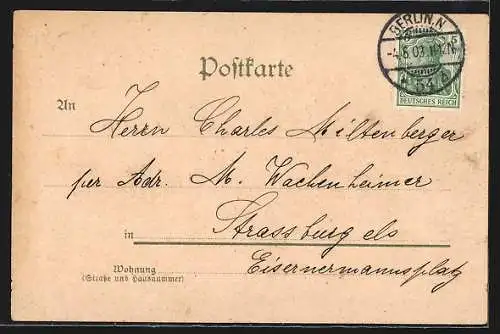 BERLIN, N.
-4.6.03.11-12N.
54
5
DEUTSCHES REICH
Postkarte
An
Herrn Charles Miltenberger
per Adr. M. Wachenheimer
in Strassburg els
Wohnung
(Straße und Hausnummer)
Eisernermannsplatz